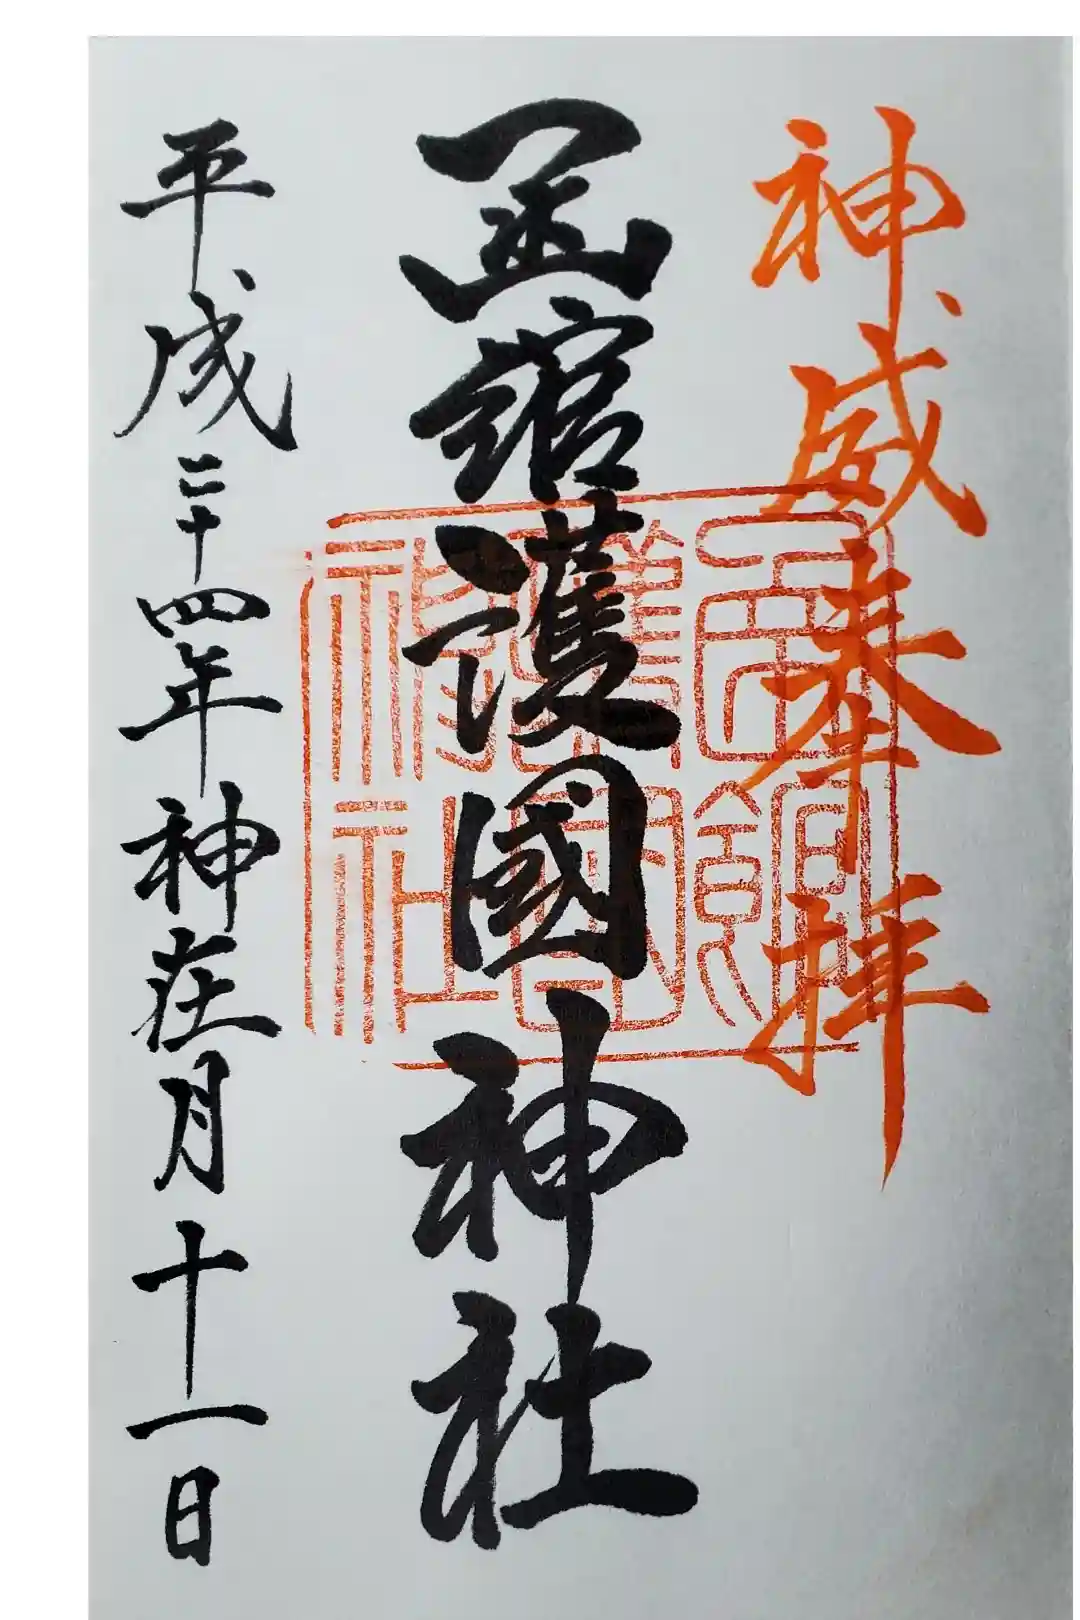 神威奉拝
函館護國神社
平成二十四年神在月十一日
函館
護國
神社